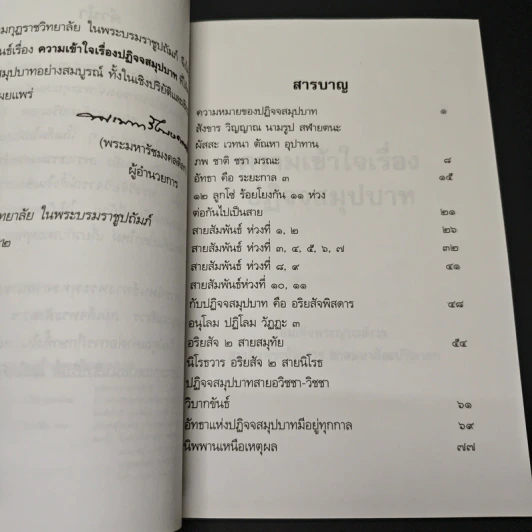 มกุฏราชวิทยาลัย ในพระบรมราชูปถัมภ์
เรื่อง ความเข้าใจเรื่องปฏิจจสมุปบาท
สมุปบาทอย่างสมบูรณ์ ทั้งในเชิงปริยัติและ
เผยแพร่
(พระมหารัชมงคล
ผู้อำนวยการ
ทยาลัย ในพระบรมราชูปถัมภ์
๒
สารบาญ
ความหมายของปฏิจจสมุปบาท ๑
สังขาร วิญญาณ นามรูป สฬายตนะ
ผัสสะ เวทนา ตัณหา อุปาทาน
ภพ ชาติ ชรา มรณะ ๘
อัทธา คือ ระยะกาล ๓ ๑๕
๑๒ ลูกโซ่ ร้อยโยงกัน ๑๑ ห่วง
ต่อกันไปเป็นสาย ๒๑
สายสัมพันธ์ ห่วงที่ ๑, ๒ ๒๖
สายสัมพันธ์ ห่วงที่ ๓, ๔, ๕, ๖, ๗ ๓๒
สายสัมพันธ์ ห่วงที่ ๘, ๙ ๔๑
สายสัมพันธ์ห่วงที่ ๑๐, ๑๑
กับปฏิจจสมุปบาท คือ อริยสัจพิสดาร ๔๘
อนุโลม ปฏิโลม วัฏฏะ ๓
อริยสัจ ๒ สายสมุทัย ๕๔
นิโรธวาร อริยสัจ ๒ สายนิโรธ
ปฏิจจสมุปบาทสายอวิชชา-วิชชา
วิบากขันธ์ ๖๑
อัทธาแห่งปฏิจจสมุปบาทมีอยู่ทุกกาล ๖๙
นิพพานเหนือเหตุผล ๗๗